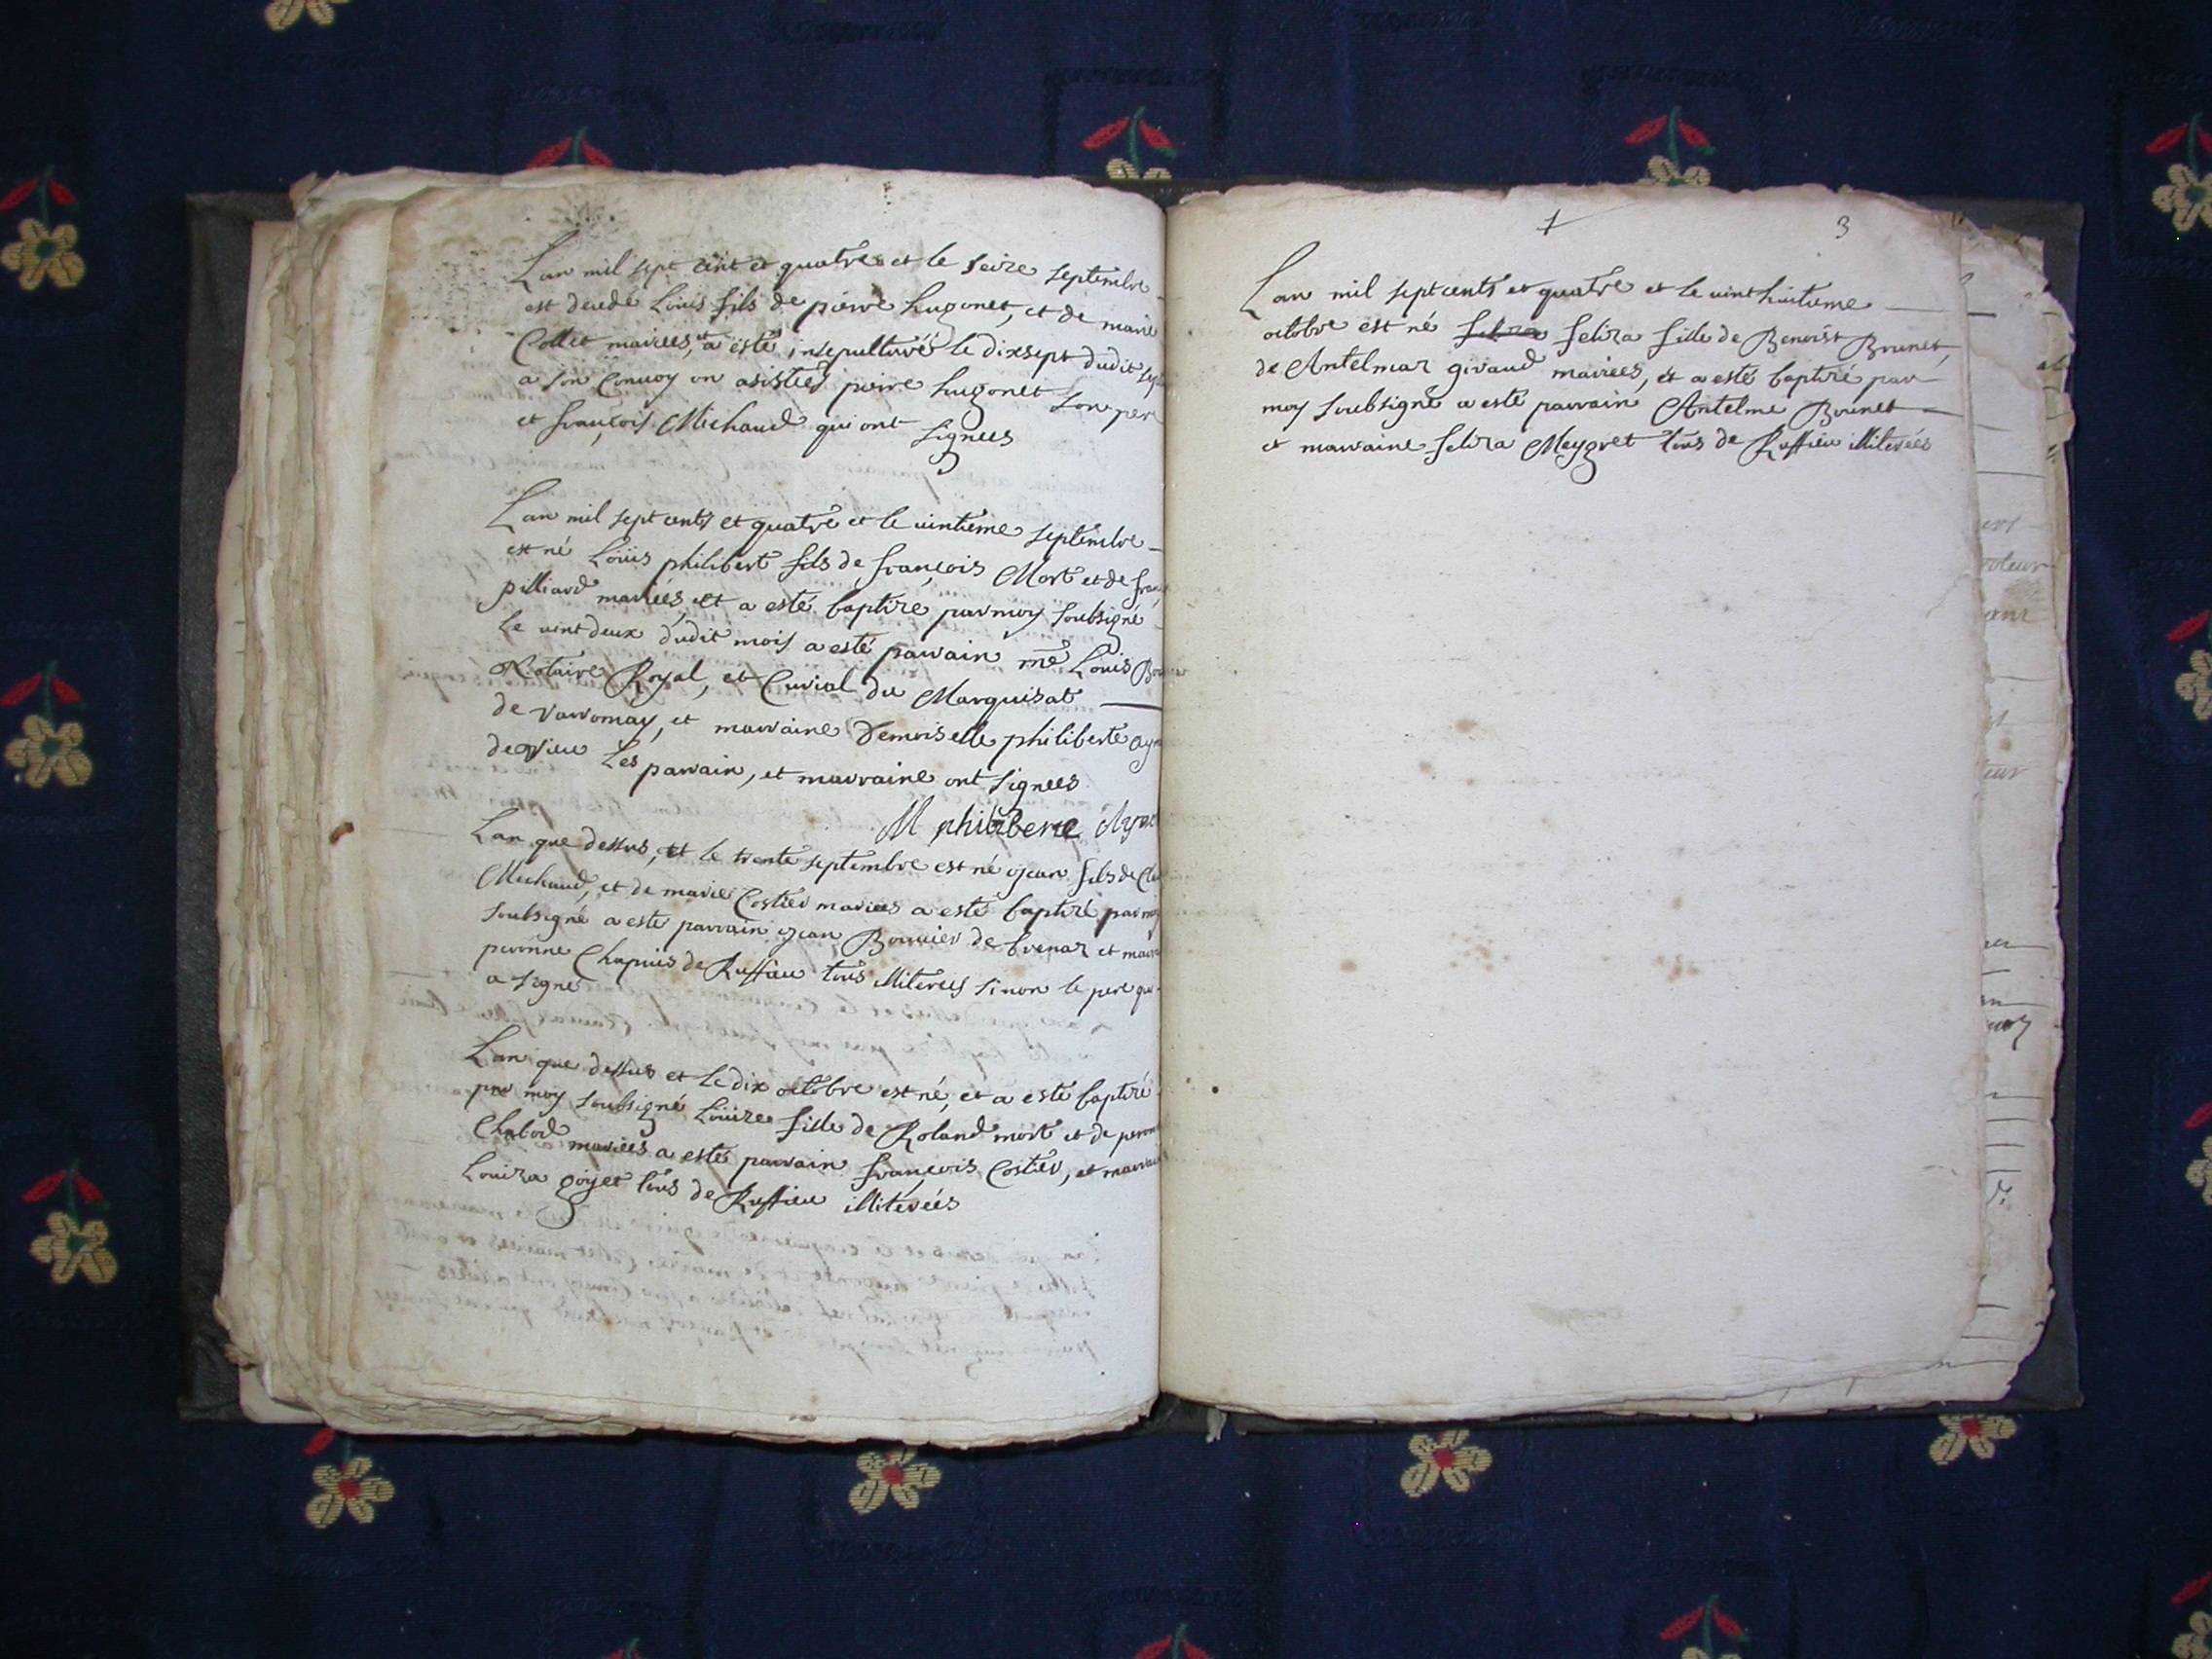 Lan mil sept cent et quatre et le seize septembre
est decedé Louis fils de pierre hugonet, et de marie
Collet mariees, et a esté insepulturé le dixsept dudit
a son Convoy on asistées pierre hugonet son pere
et françois Michaud qui ont signees
Lan mil sept cents et quatre et le vintieme septembre
est né Loüis philibert fils de françois Mort et de
pilliard mariées, et a esté baptize par moy soubsigné
Le vint deux dudit mois a esté parrain me Louis
Notaire Royal, et Curial du Marquisat
de varromay, et marraine Demoiselle philiberte
de vieu Les parrain, et marraine ont signees
M philiberte
Lan que dessus, et le trente septembre est né jean fils de
Michaud, et de marie Costier mariees a esté baptizé par moy
soubsigné a esté parrain jean Bouvier de brenaz et
peronne Chapuis de Ruffieu tous illiterees sinon le pere qui
a signé
Lan que dessus et le dix octobre est né, et a esté baptizé
par moy soubsigné Loüize fille de Roland mort et de
Chabod mariees a esté parrain françois Costier, et
Louiza goyet tous de Ruffieu illiterées
1 3
Lan mil sept cents et quatre et le vinthuitieme
octobre est né feliza feliza fille de Benoist Brunet,
de Antelmaz givaud mairees, et a esté baptizé par
moy soubsigné a esté parrain Antelme Brunet
et marraine feliza Meygret tous de Ruffieu illiterées